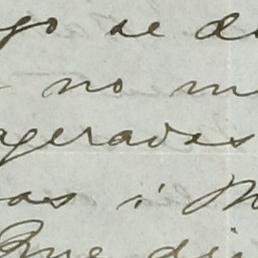 go se de
no m
ageradas
as i M
Que di